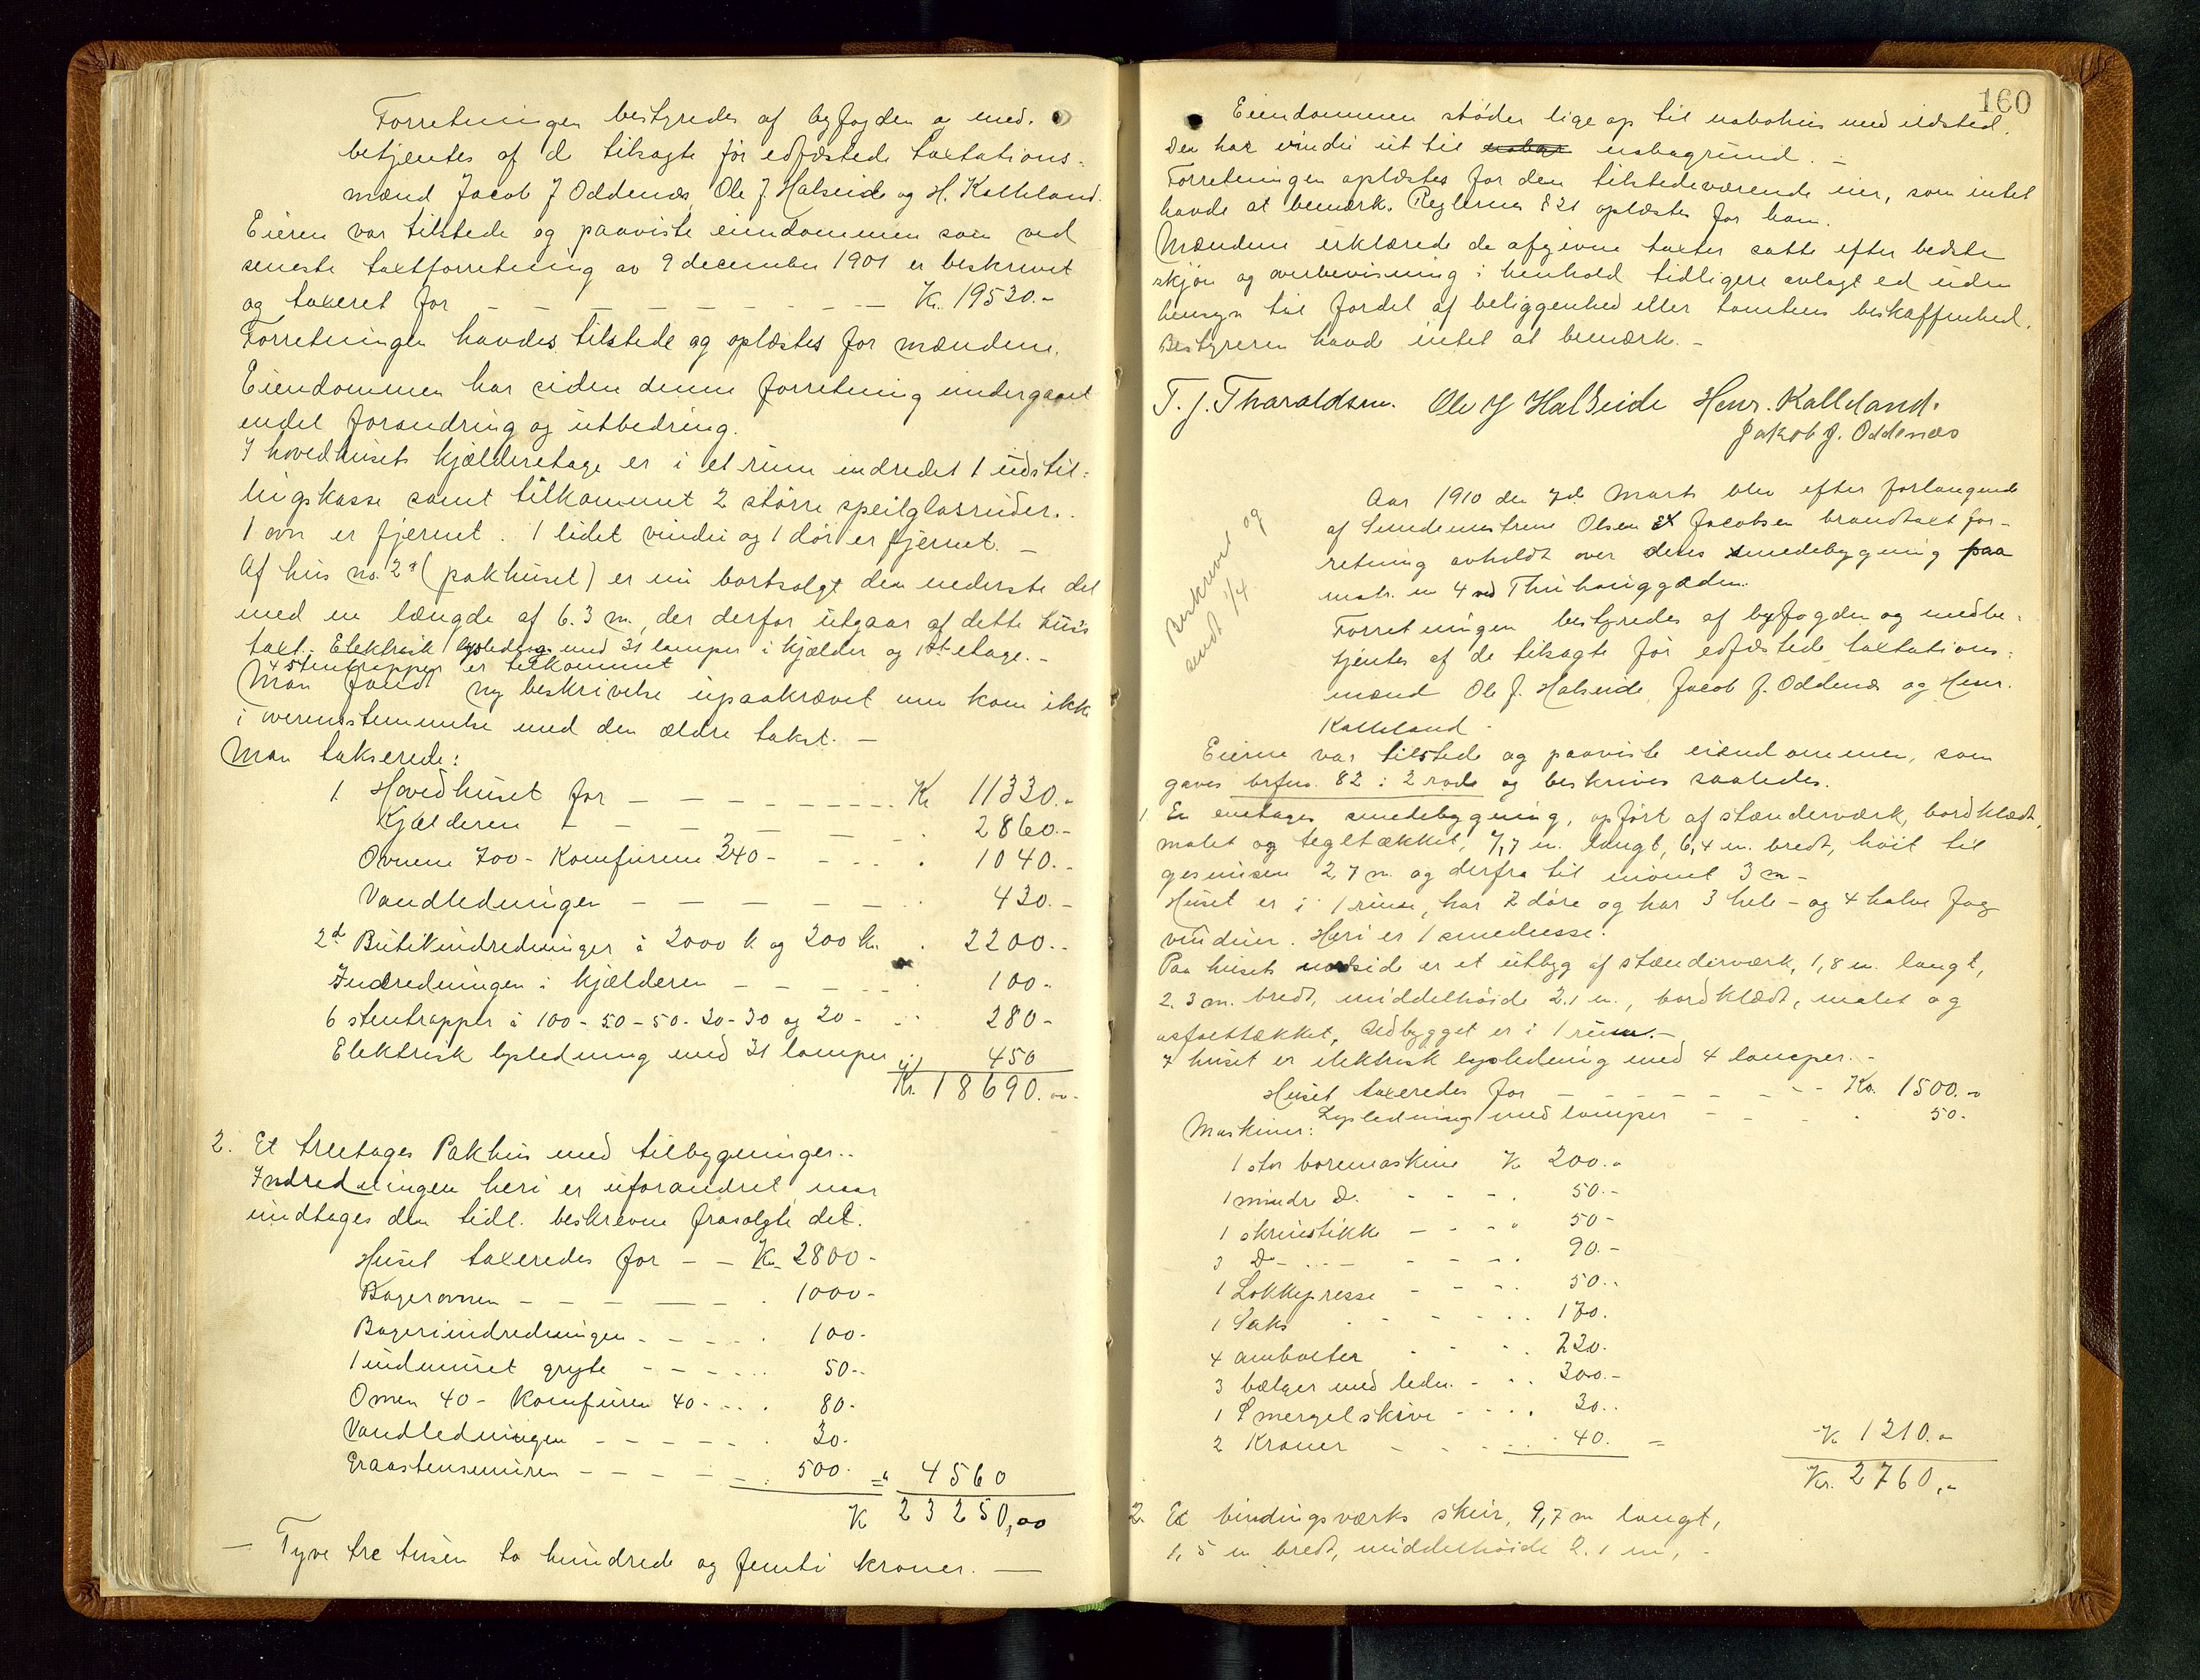 Forretningen bestyredes af byfogden og med-
betjentes af de tilsagte før edfæstede taxtations-
mænd Jacob J Oddenæs, Ole J. Halseide og H. Kalleland.
Eieren var tilstede og paaviste eiendommen som ved
seneste taxtforretning av 9 december 1901 er beskrevet
og taxeret for — — — — — — — — Kr. 19530.-
Forretningen havdes tilstede og oplæstes for mændene.
Eiendommen har siden denne forretning undergaaet
endel forandring og utbedring.
I hovedhusets kjælderetage er i et rum indredet 1 udstil-
lingskasse samt tilkommet 2 større speilglasruder.
1 ovn er fjernet. 1 lidet vindu og 1 dør er fjernet. —
Af hus no. 2ª (pakhuset) er nu bortsolgt den nederste del
med en længde af 6.3 m, der derfor utgaar af dette hus's
taxt. Elektrisk lysledning med 31 lamper i kjælder og 1st etage. -
4 stentrapper er tilkommet
Man fandt ny beskrivelse upaakrævet men kom ikke
i overensstemmelse med den ældre takst. —
Man takserede:
1. Hovedhuset for — — — — — — Kr 11330.-
Kjælderen — — — — — — 2860.-
Ovnene 700- Komfurene 340- - - - 1040.-
Vandledningen — — — — — 430.-
2d Butikindredninger à 2000 k og 200 kr. . 2200.-
Indredningen i kjælderen — — — — 100-
6 stentrapper à 100-50-50-30-30 og 20- - - 280-
Elektrisk lysledning med 31 lamper 450
Kr. 18690.00.
2. Et treetages Pakhus med tilbygninger..
Indredningen heri er uforandret naar
undtages den tidl. beskrevne frasolgte del.
Huset taxeredes for — — Kr. 2800-
Bagerovnen — — — — — 1000-
Bagerindredningen - - - - 100-
1 indmuret gryte - - - - 50-
Ovnen 40- Komfuren 40- - - 80-
Vandledningen - - - - - 30-
Graastensmuren - - - - - 500- = 4560
K 23250,00
— Tyve tre tusen to hundrede og femti kroner. —
160
Eiendommen støder lige op til nabohus med ildsted.
Den har vindu ut til nabogrund. -
Forretningen oplæstes for den tilstedeværende eier, som intet
havde at bemærke. Reglerne § 21 oplæstes for ham.
Mændene erklærede de afgivne taxter satte efter bedste
skjøn og overbevisning i henhold tidligere avlagt ed uden
hensyn til fordel af beliggenhed eller tomtens beskaffenhed.
Bestyreren havde intet at bemærke. -
T. J. Tharaldsen. Ole J Halseide Henr. Kalleland.
Jakob J. Oddenæs
Beskrevet og
sendt 1/4
Aar 1910 den 7de Marts blev efter forlangende
af Smedemestrene Olsen & Jacobsen brandtaxtfor-
retning avholdt over deres smedebygning paa
matr. no 4 ved Thuhauggaden.
Forretningen bestyredes af byfogden og medbe-
tjentes af de tilsagte før edfæstede taxtations-
mænd Ole J. Halseide, Jacob J. Oddenæs og Henr.
Kalleland -
Eierne var tilstede og paaviste eiendommen, som
gaves brfno. 82 i 2 rode og beskrives saaledes.
1. En enetages smedebygning, opført af stænderværk, bordklædt,
malet og tegltækket, 7,7 m. langt, 6,4 m. bredt, høit til
gesimsen 2,7 m. og derfra til mønet 3 m -
Huset er i 1 rum, har 2 døre og har 3 hele - og 4 halve fag
vinduer. Heri er 1 smedeesse.
Paa husets nordside er et utbyg af stænderværk, 1,8 m. langt,
2.3 m. bredt, middelhøide 2.1 m., bordklædt, malet og
asfalttækket, Udbygget er i 1 rum. -
I huset er elektrisk lysledning med 4 lamper. -
Huset taxeredes for — — — — — - - Kr. 1500.-
Lysledning med lamper - - - 50.-
Maskiner:
1 stor boremaskine Kr 200.-
1 mindre Do. - - - . 50.-
1 skruestikke - - - " 50-
3 Do - ... - - - - . 90.-
1 Lokkepresse - - - . 50..
1 Saks . - - - . . 170.
4 ambolter - - - . 230.
3 bælger med leder. - . . 300.-
1 Smergelskive - - - . 30..
2 Kraner - - - . 40. = Kr 1210.-
Kr. 2760,-
2. Et bindingsværks skur, 9,7 m langt,
1,5 m bredt, middelhøide 2.1 m, -